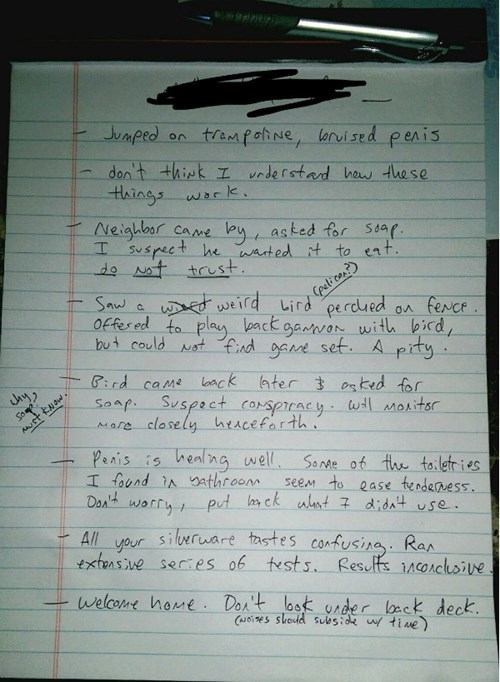 - Jumped on trampoline, bruised penis
- don't think I understand how these
things work.
- Neighbor came by, asked for soap.
I suspect he wanted it to eat.
do not trust.
(pelican?)
- Saw a wierd weird bird perched on fence.
Offered to play backgammon with bird,
but could not find game set. A pity.
- Bird came back later & asked for
soap. Suspect conspiracy. Will monitor
more closely henceforth.
Why,
soap?
must know.
- Penis is healing well. Some of the toiletries
I found in bathroom seem to ease tenderness.
Don't worry, put back what I didn't use.
- All your silverware tastes confusing. Ran
extensive series of tests. Results inconclusive.
- Welcome home. Don't look under back deck.
(noises should subside w/ time)